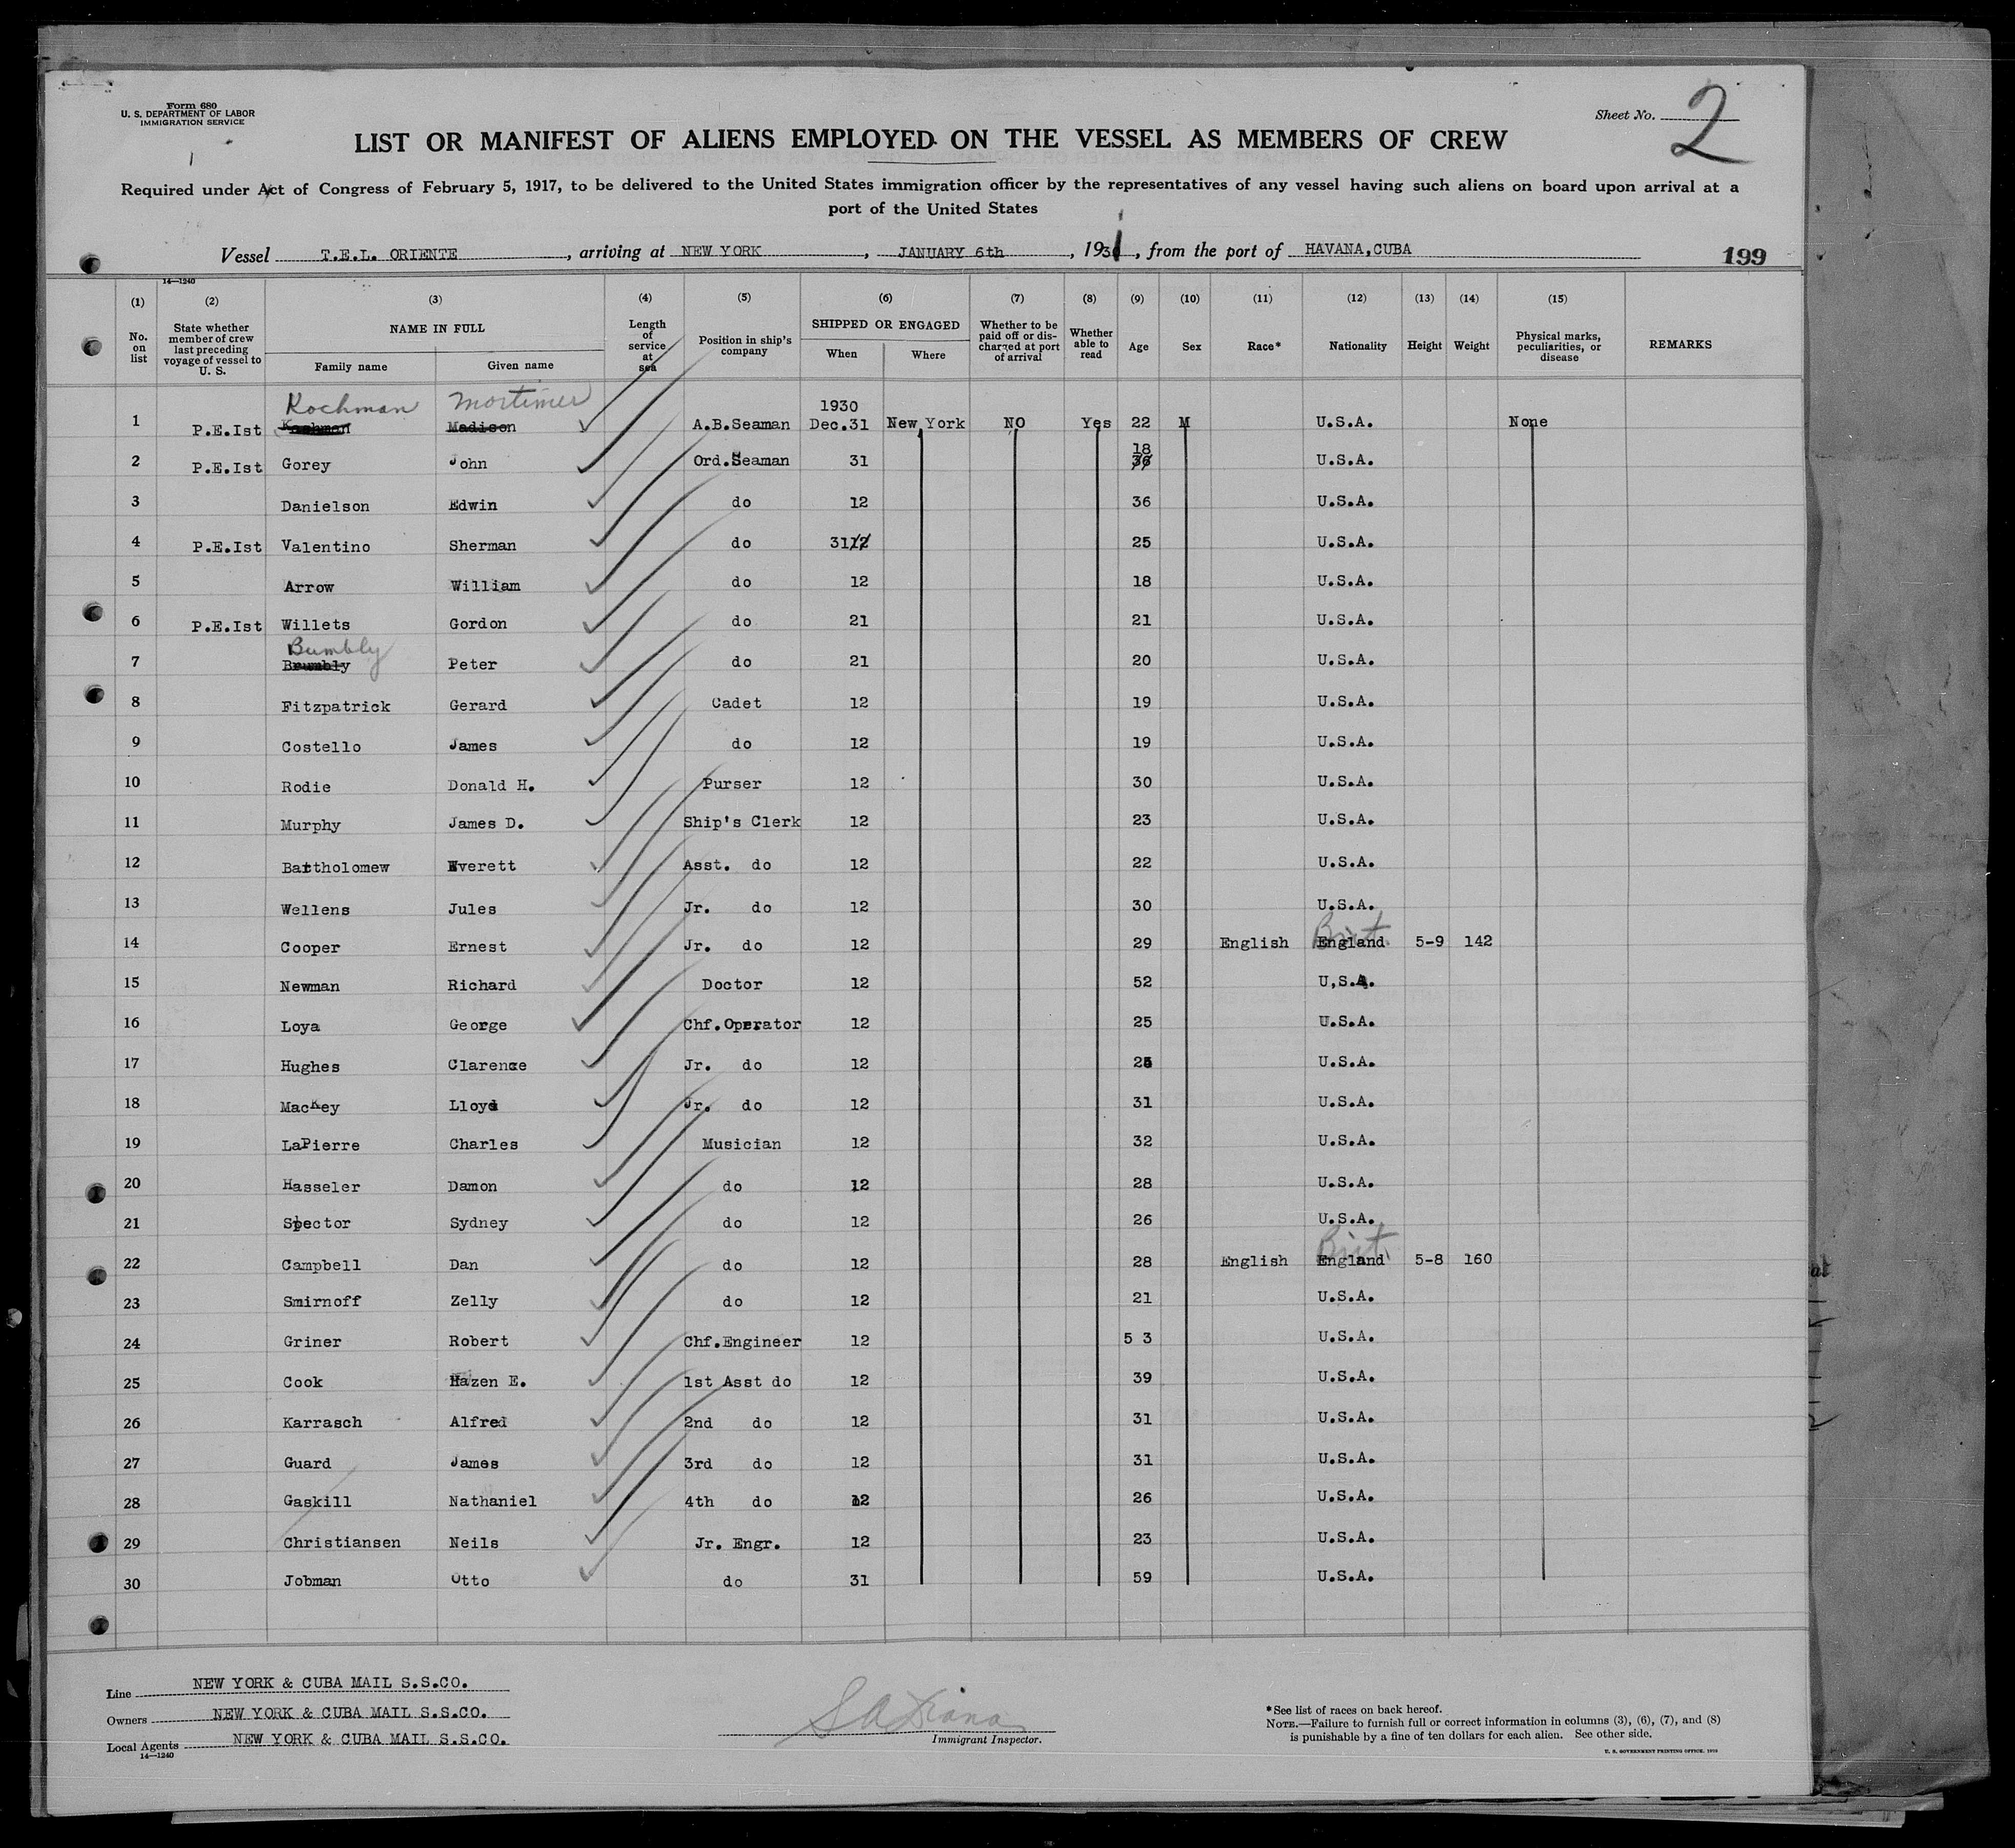 Form 680
U. S. DEPARTMENT OF LABOR
IMMIGRATION SERVICE
Sheet No. 2
LIST OR MANIFEST OF ALIENS EMPLOYED ON THE VESSEL AS MEMBERS OF CREW
Required under Act of Congress of February 5, 1917, to be delivered to the United States immigration officer by the representatives of any vessel having such aliens on board upon arrival at a
port of the United States
Vessel T.E.L. ORIENTE, arriving at NEW YORK, JANUARY 6th, 1931, from the port of HAVANA,CUBA 199
14—1240
(1) (2) (3) (4) (5) (6) (7) (8) (9) (10) (11) (12) (13) (14) (15)
No. on list State whether member of crew last preceding voyage of vessel to U. S. NAME IN FULL Family name Given name Length of service at sea Position in ship's company SHIPPED OR ENGAGED When Where Whether to be paid off or discharged at port of arrival Whether able to read Age Sex Race* Nationality Height Weight Physical marks, peculiarities, or disease REMARKS
Kochman Mortimer 1930
1 P.E.Ist Kashman Madison A.B.Seaman Dec.31 New York NO Yes 22 M U.S.A. None
2 P.E.Ist Gorey John Ord.Seaman 31 18 36 U.S.A.
3 Danielson Edwin do 12 36 U.S.A.
4 P.E.Ist Valentino Sherman do 3112 25 U.S.A.
5 Arrow William do 12 18 U.S.A.
6 P.E.Ist Willets Gordon do 21 21 U.S.A.
Bumbly
7 Brumbly Peter do 21 20 U.S.A.
8 Fitzpatrick Gerard Cadet 12 19 U.S.A.
9 Costello James do 12 19 U.S.A.
10 Rodie Donald H. Purser 12 30 U.S.A.
11 Murphy James D. Ship's Clerk 12 23 U.S.A.
12 Bartholomew Everett Asst. do 12 22 U.S.A.
13 Wellens Jules Jr. do 12 30 U.S.A.
Brit.
14 Cooper Ernest Jr. do 12 29 English England 5-9 142
15 Newman Richard Doctor 12 52 U,S.A.
16 Loya George Chf.Operator 12 25 U.S.A.
17 Hughes Clarence Jr. do 12 U.S.A.
18 Mackey Lloyd Jr. do 12 31 U.S.A.
19 LaPierre Charles Musician 12 32 U.S.A.
20 Hasseler Damon do 12 28 U.S.A.
21 Spector Sydney do 12 26 U.S.A.
Brit.
22 Campbell Dan do 12 28 English England 5-8 160
23 Smirnoff Zelly do 12 21 U.S.A.
24 Griner Robert Chf.Engineer 12 5 3 U.S.A.
25 Cook Hazen E. 1st Asst do 12 39 U.S.A.
26 Karrasch Alfred 2nd do 12 31 U.S.A.
27 Guard James 3rd do 12 31 U.S.A.
28 Gaskill Nathaniel 4th do 12 26 U.S.A.
29 Christiansen Neils Jr. Engr. 12 23 U.S.A.
30 Jobman Otto do 31 59 U.S.A.
Line NEW YORK & CUBA MAIL S.S.CO.
Owners NEW YORK & CUBA MAIL S.S.CO.
Local Agents NEW YORK & CUBA MAIL S.S.CO.
14—1240
Immigrant Inspector.
*See list of races on back hereof.
NOTE.—Failure to furnish full or correct information in columns (3), (6), (7), and (8)
is punishable by a fine of ten dollars for each alien. See other side.